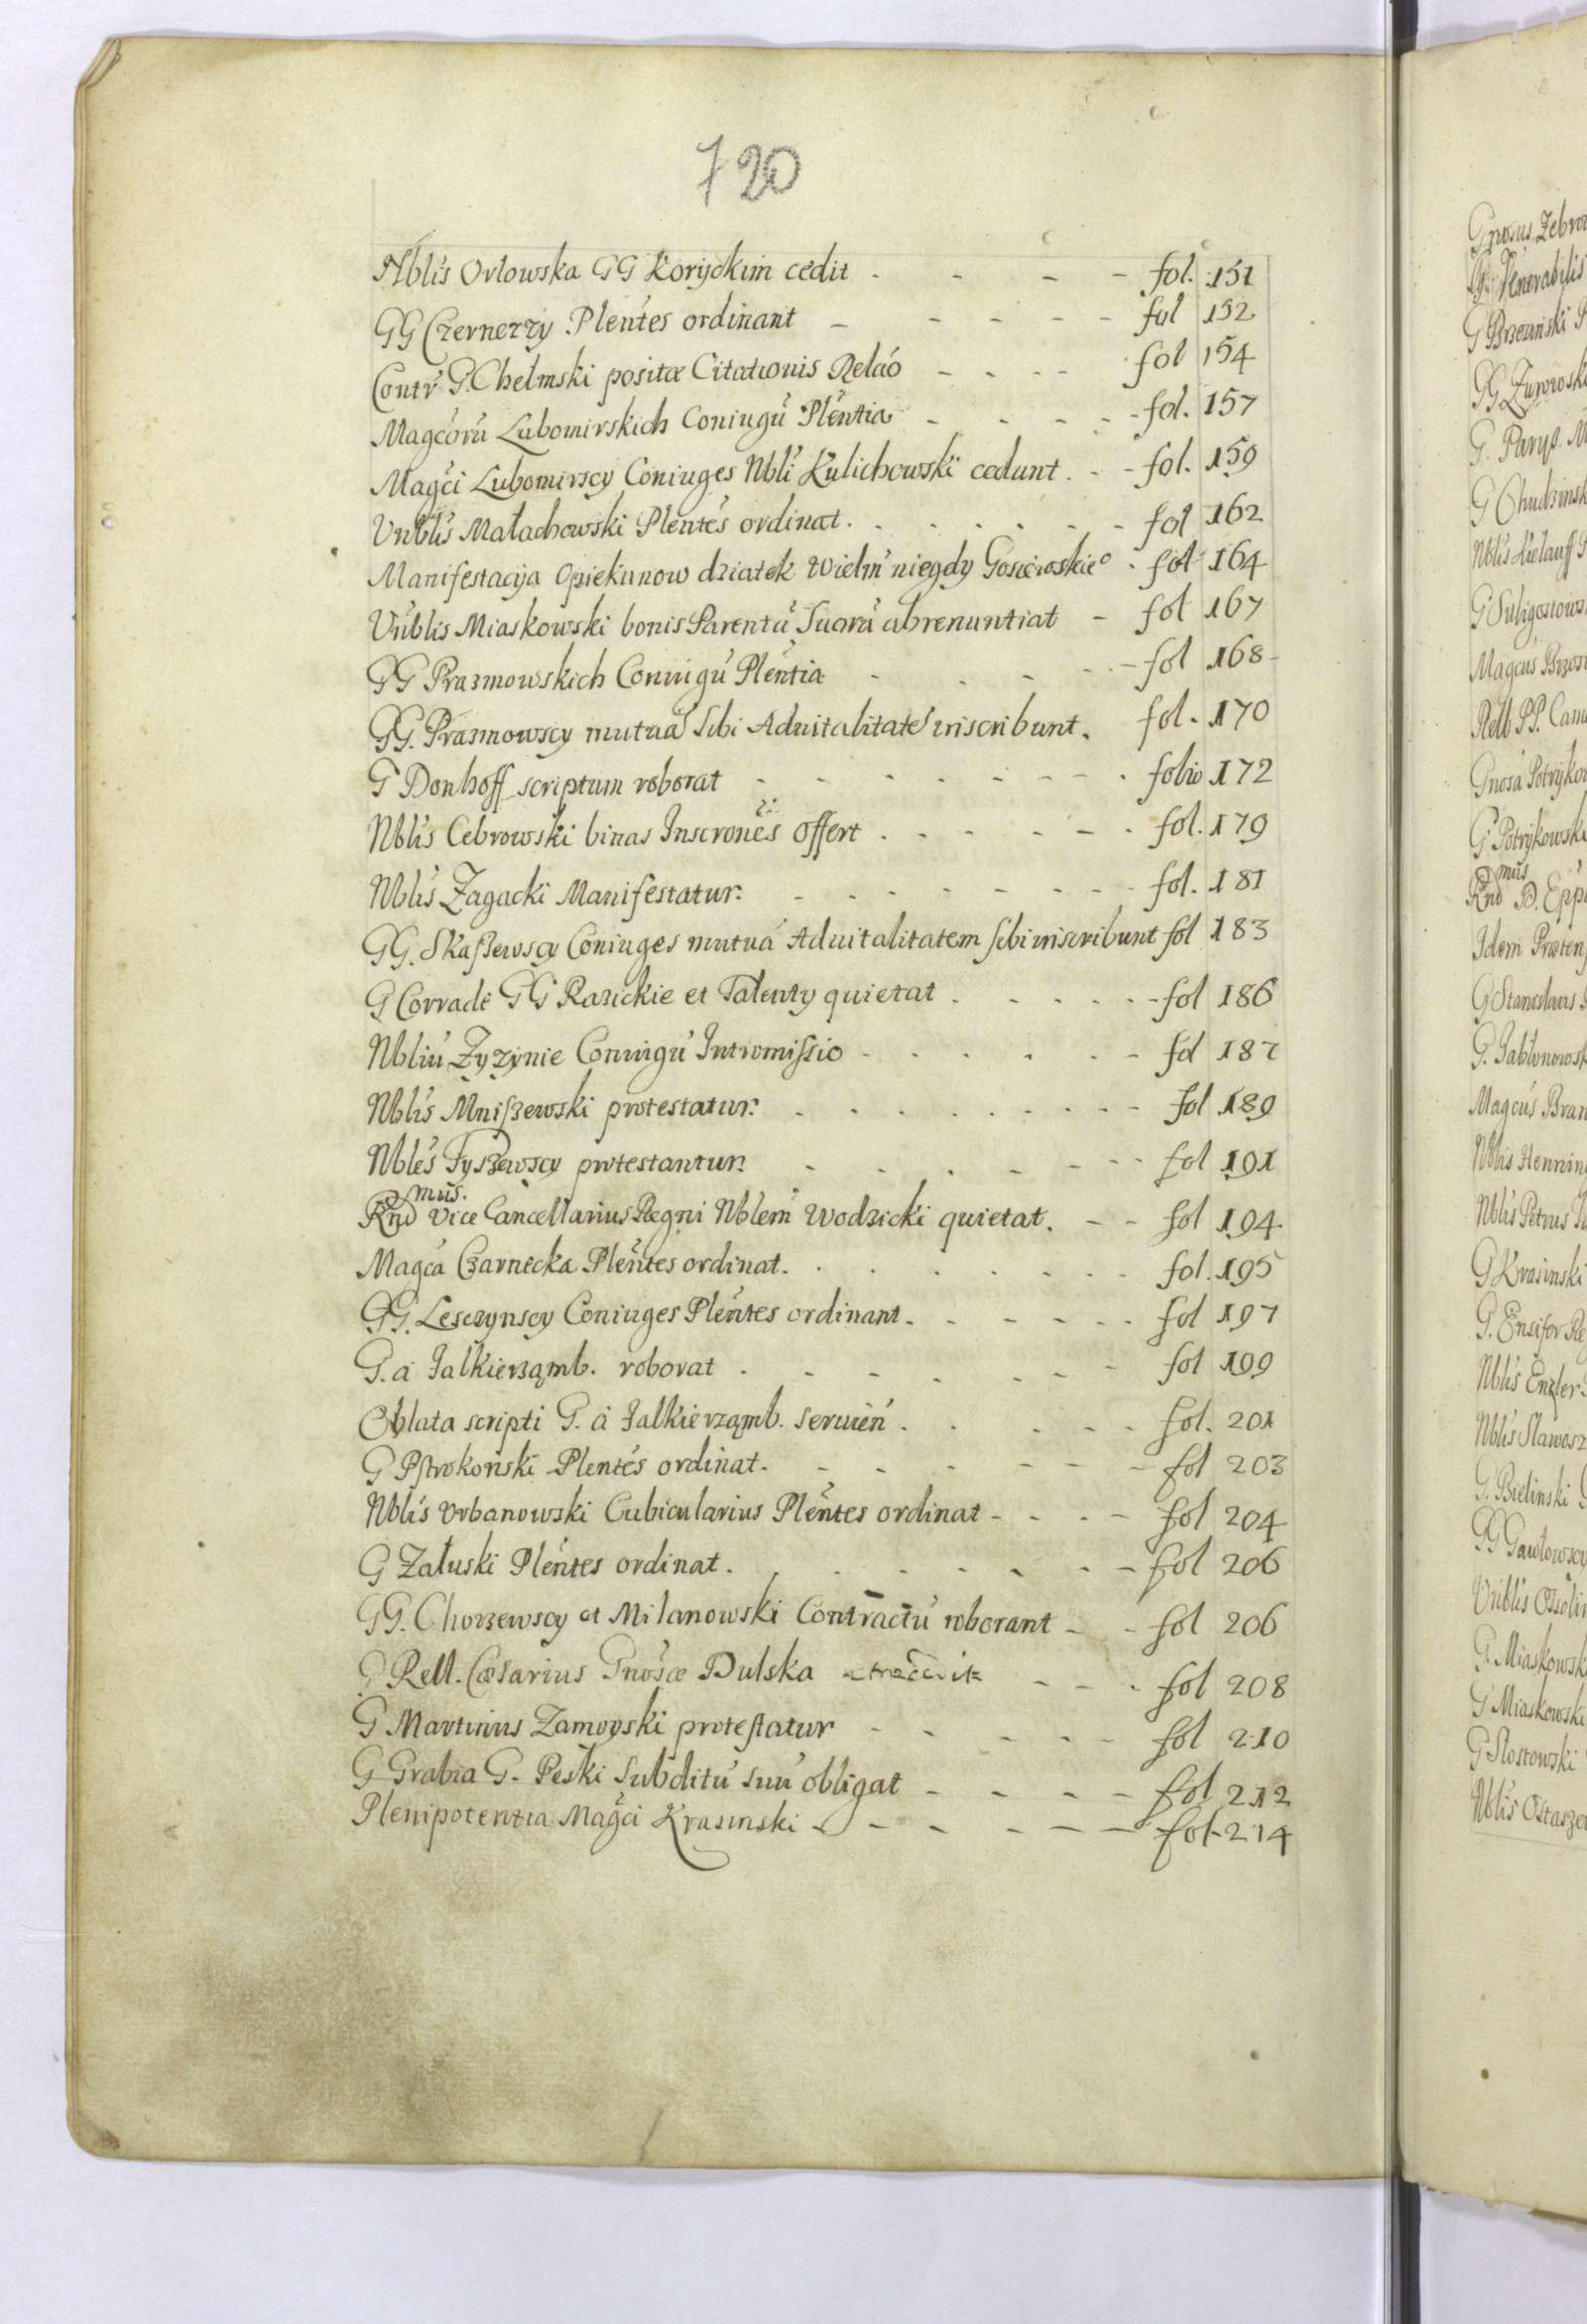 720
Nblis Orlowska GG Koryckim cedit - - - - fol. 151
GG Czernerzy Plentes ordinant - - - - - fol 152
Contr G. Chelmski positæ Citationis Relaó - - - - fol 154
Magcorú Lubomirskich Coniugú Plentia - - - - fol. 157
Magci Lubomirscy Coniuges Nbli Kulichowski cedunt. - - fol. 159
Vnblis Małachowski Plentes ordinat. - - - - - fol 162
Manifestacyja Opiekunow dziatek Wielm niegdy fol 164
Vnblis Miaskowski bonis Parentú Suorú abrenuntiat - fol 167
GG Prazmowskich Coniugú Plentia - - - - fol 168
GG. Prazmowscy mutuá Sibi Aduitalitaté inscribunt. fol. 170
G Donhoff scriptum roborat - - - - - - folio 172
Nblis Cebrowski binas Inscrones offert - - - - fol. 179
Nblis Zagacki Manifestatur: - - - - - - fol. 181
GG. Skaszewscy Coniuges mutuá Aduitalitatem sibi inscribunt fol 183
G Corradi GG Razickie et Talenty quietat - - - - fol 186
Nbliú Zyzynie Coniugú Intromissio - - - - - fol 187
Nblis Mniszewski protestatur: - - - - - - fol 189
Nbles Tyszewscy protestantur: - - - - - - fol 191
Rnd mus. Vice Cancellarius Regni Nblem Wodzicki quietat. - - fol 194.
Magca Czarnecka Plentes ordinat. - - - - - fol. 195
GG. Lesczynscy Coniuges Plentes ordinant. - - - - fol 197
G. á Jalkierzamb. roborat - - - - - - fol 199
Oblata scripti G. á Jalkierzamb. seruien. - - - - fol. 201
G Pstrokonski Plentes ordinat. - - - - - fol 203
Nblis Vrbanowski Cubicularius Plentes ordinat - - - - fol 204
G Załuski Plentes ordinat. - - - - - - fol 206
GG. Chorzewscy et Milanowski Contractú roborant - - fol 206
G Rell. Cæsarius Gnosæ Dulska - - - fol 208
G Martinus Zamoyski protestatur - - - - fol 210
G Grabia G. Peski Subditú Suú obligat - - - - fol 212
Plenipotentia Magci Krasinski - - - - - fol. 214
Gnosus
Venerabilis
G Brzezinski
GG Zurowsk
G. Parys. M
G Chudzinsk
Nblis
G Suligostows
Magcus Brzos
Rell PP. Cam
Gnosá Potryko
G Potrykowski
Rnd mus D. Epp
Idem Præten
G Stanislaus
G. Jabłonowsk
Magcus Bran
Nblis Hennin
Nblis Petrus
G Krasinski
G. Ensifer Re
Nblis Enzler
Nblis Slawosz
G. Bielinski G
GG Gawłowscy
Vnblis Ossolin
G. Miaskowsk
G Miaskowski
G Slostowski
Nblis Ostasze